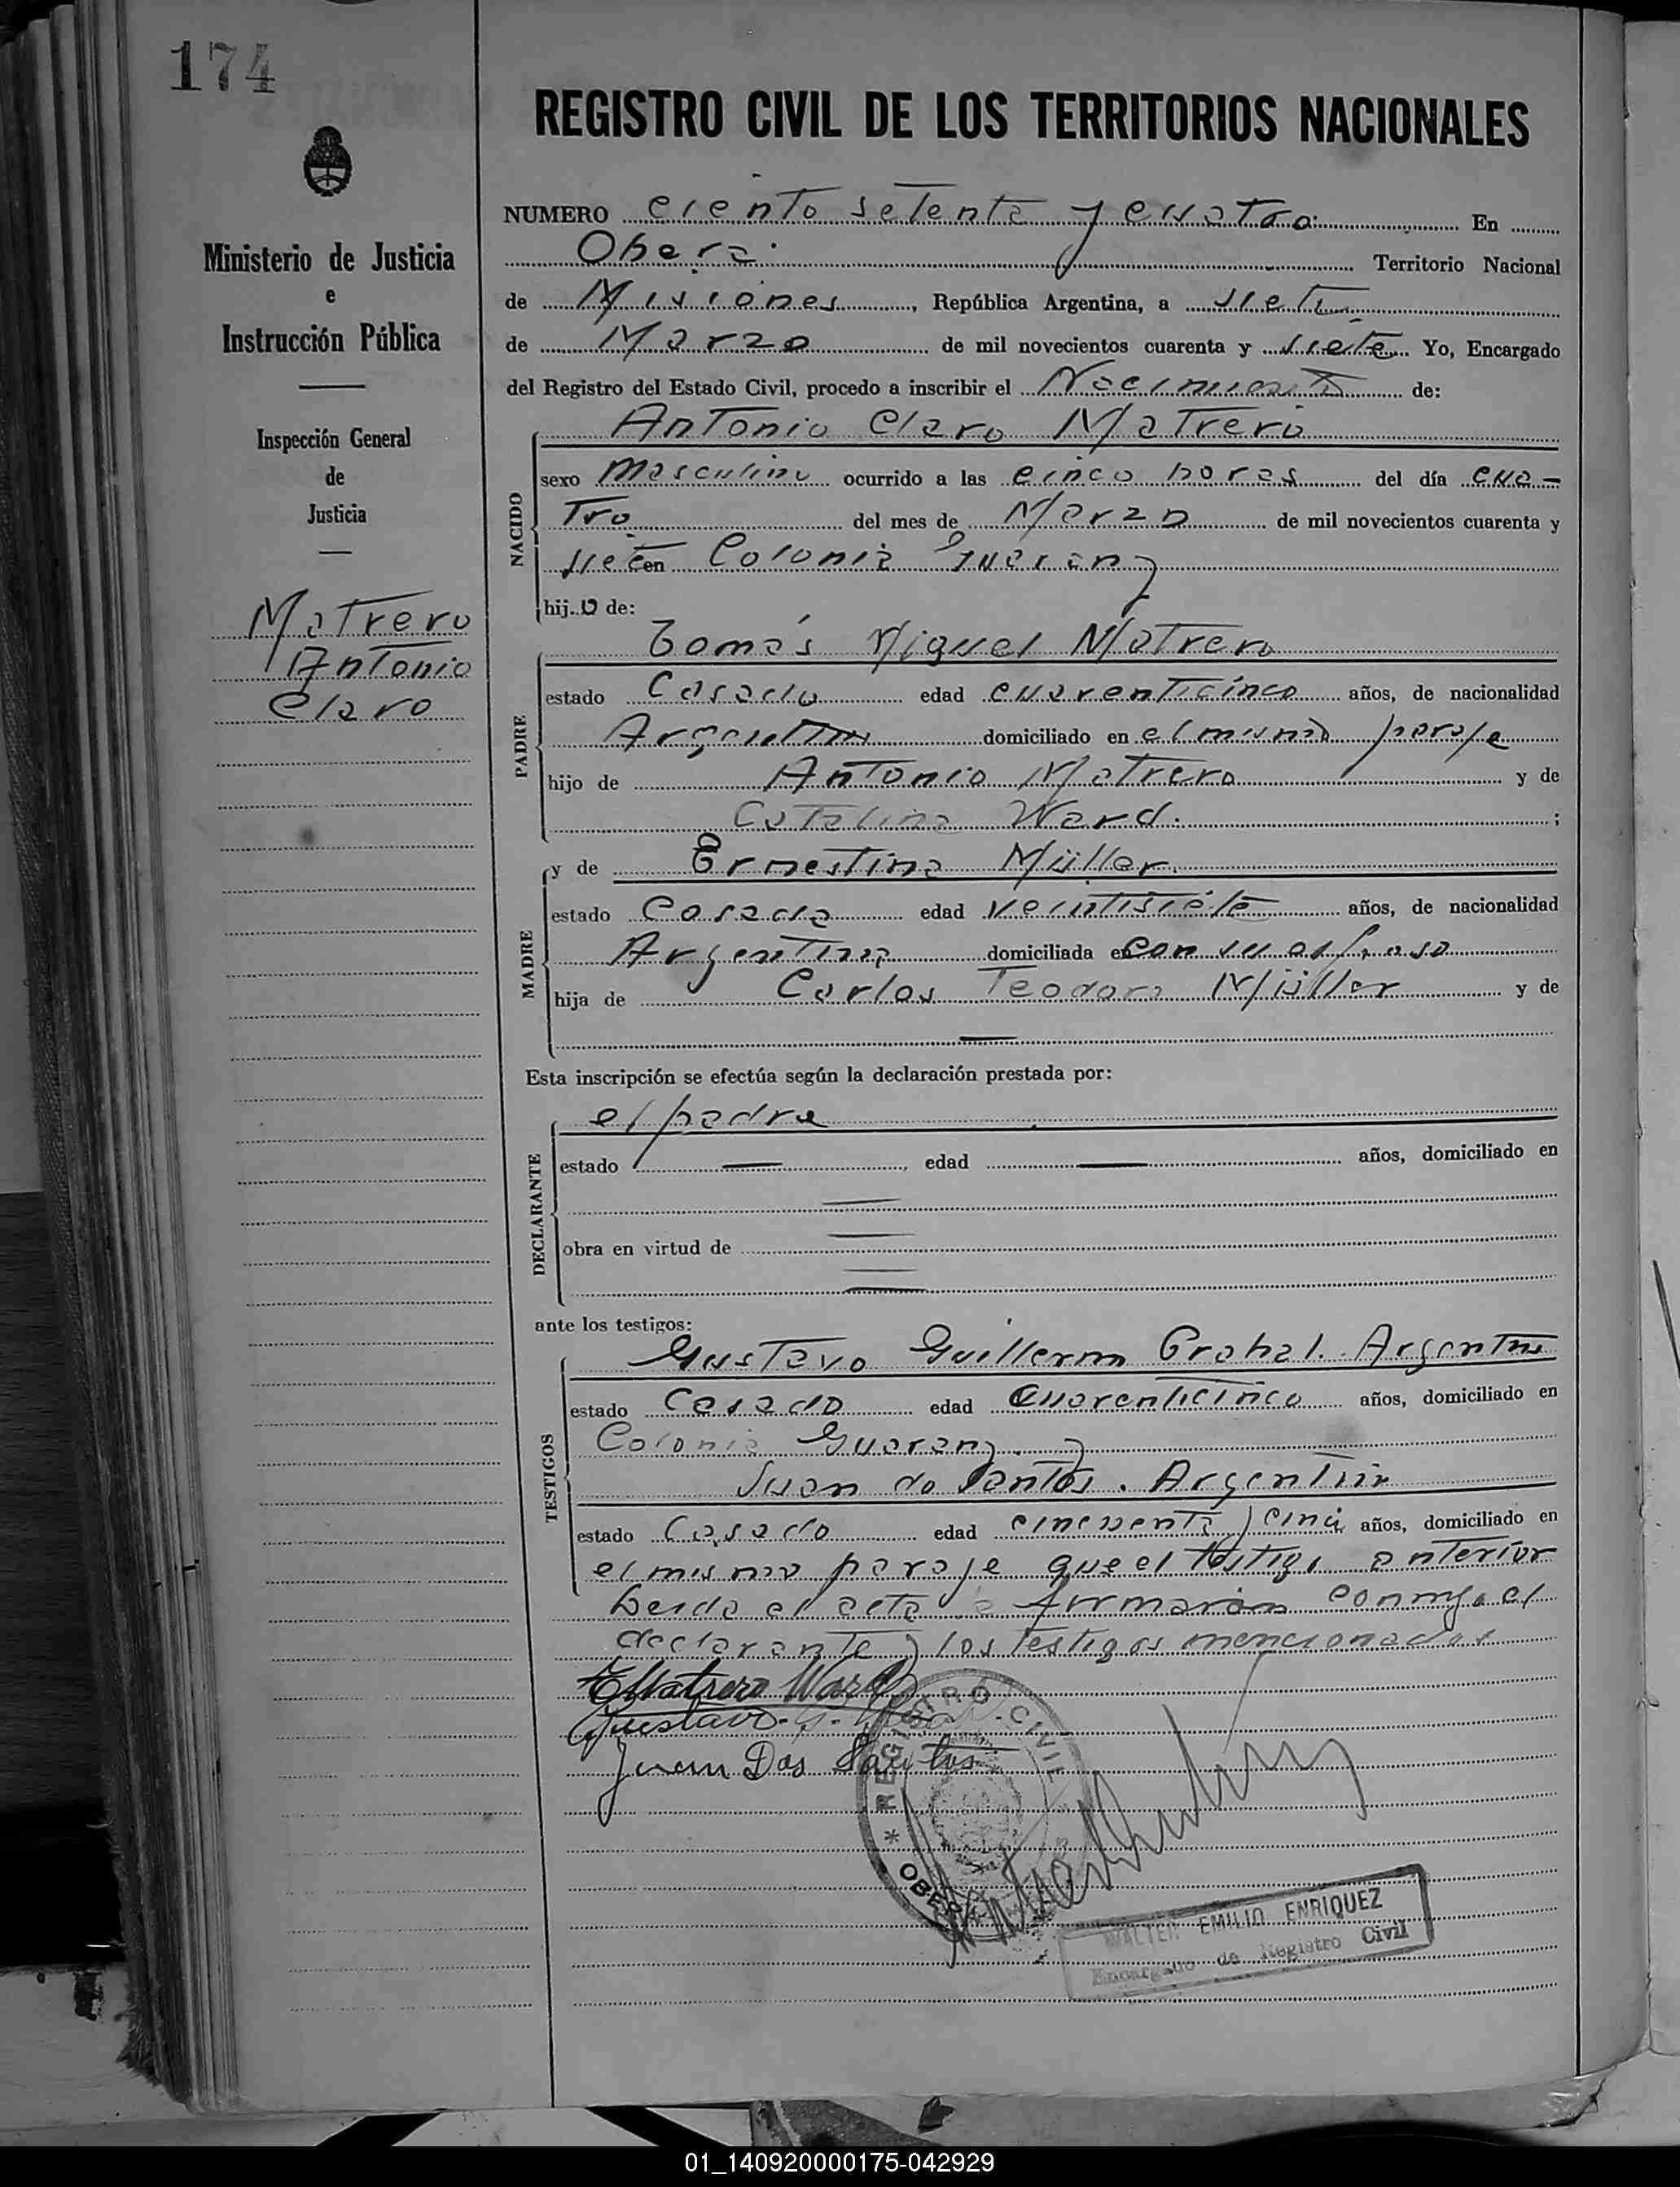 174
REGISTRO CIVIL DE LOS TERRITORIOS NACIONALES
Ministerio de Justicia
e
Instrucción Pública
Inspección General
de
Justicia
Matrero
Antonio
Claro
NUMERO ciento setenta y cuatro. En
Oberá. Territorio Nacional
de Misiones, República Argentina, a siete
de Marzo de mil novecientos cuarenta y siete Yo, Encargado
del Registro del Estado Civil, procedo a inscribir el Nacimiento de:
Antonio Claro Matrero
NACIDO
sexo masculino ocurrido a las cinco horas del día cua-
tro del mes de Marzo de mil novecientos cuarenta y
siete en Colonia Guarany
hijo de:
PADRE
Tomás Miguel Matrero
estado Casado edad cuarenticinco años, de nacionalidad
Argentino domiciliado en el mismo paraje
hijo de Antonio Matrero y de
Catalina Ward. ;
MADRE
y de Ernestina Müller.
estado Casada edad veintisiete años, de nacionalidad
Argentina domiciliada en con su esposo
hija de Carlos Teodoro Müller y de
Esta inscripción se efectúa según la declaración prestada por:
DECLARANTE
el padre
estado edad años, domiciliado en
obra en virtud de
ante los testigos:
TESTIGOS
Gustavo Guillermo Argentino
estado Casado edad cuarenticinco años, domiciliado en
Colonia Guarany.
Juan do Santos. Argentino
estado Casado edad cincuenta y cinco años, domiciliado en
el mismo paraje que el testigo anterior
Leida el acta firmarón conmigo el
declarante y los testigos mencionados
TMatrero Ward
Gustavo. G.
Juan Dos Santos
* REGISTRO CIVIL
OBERÁ
WALTER EMILIO ENRIQUEZ
Encargado de Registro Civil
01_140920000175-042929